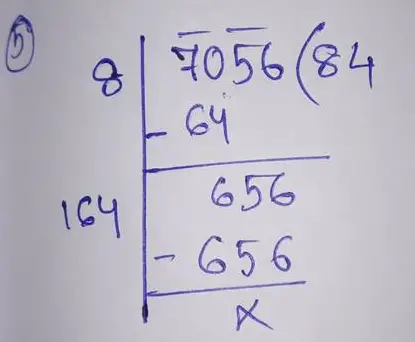 5
8 7056 ( 84
- 64
164 656
- 656
×